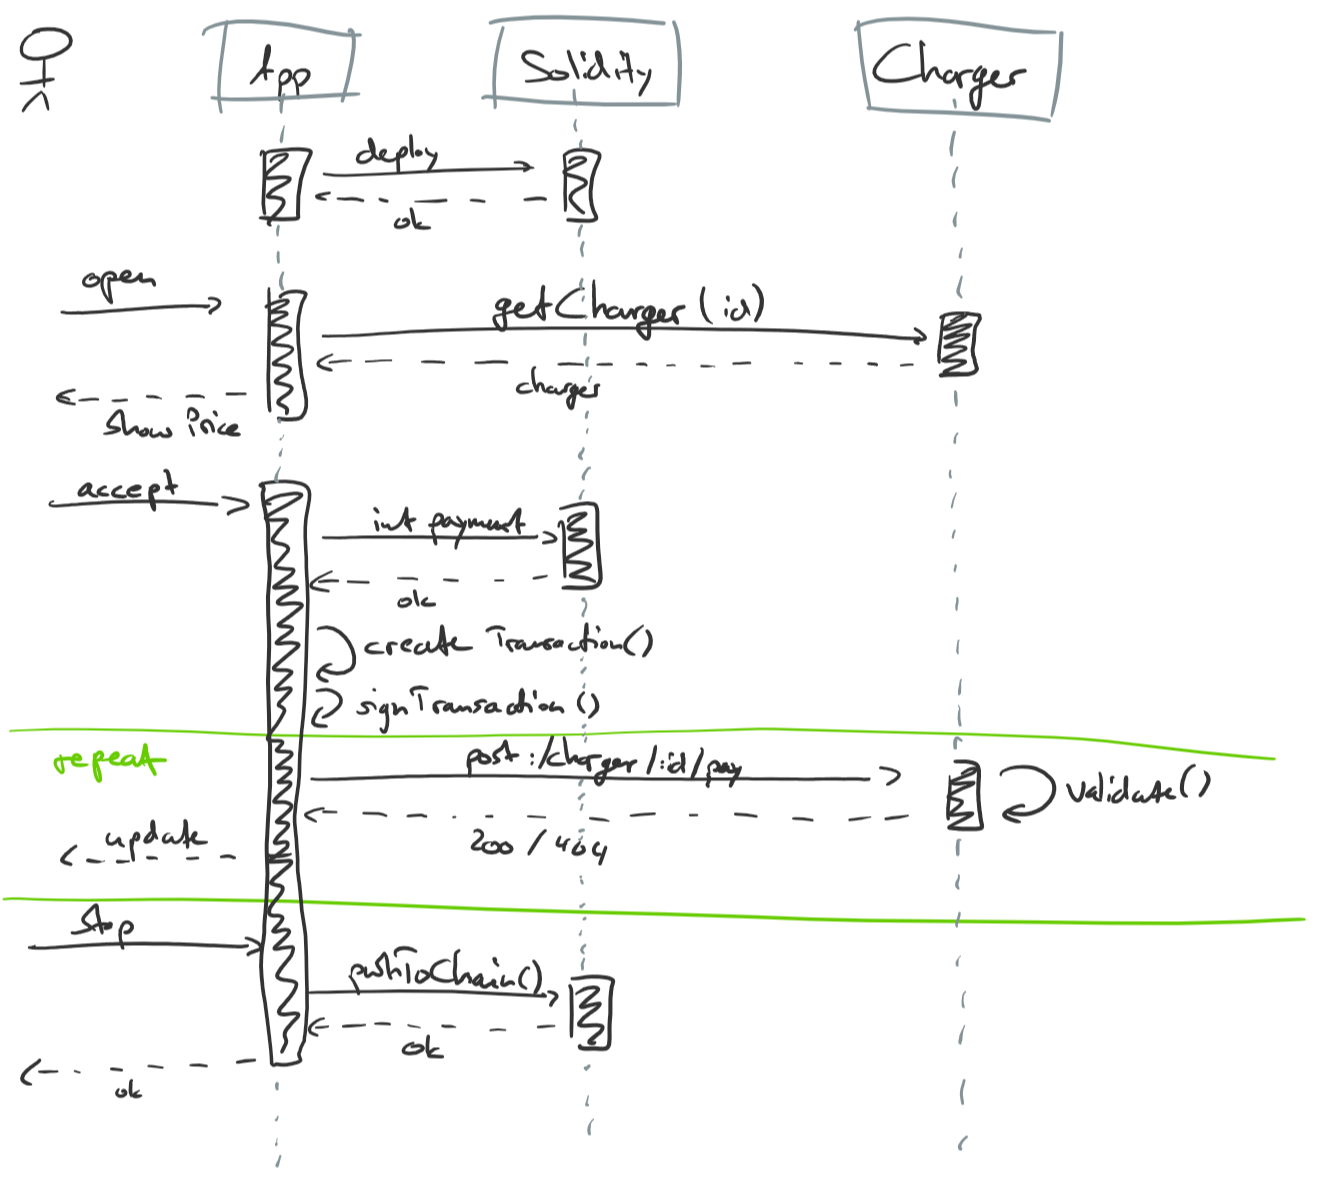 App Solidity Charger
deploy
ok
open
getCharger (id)
charger
Show Price
accept
int payment
ok
create Transaction()
signTransaction ()
repeat
post :/charger/:id/pay
validate()
update
200 / 404
Stop
pushToChain()
ok
ok